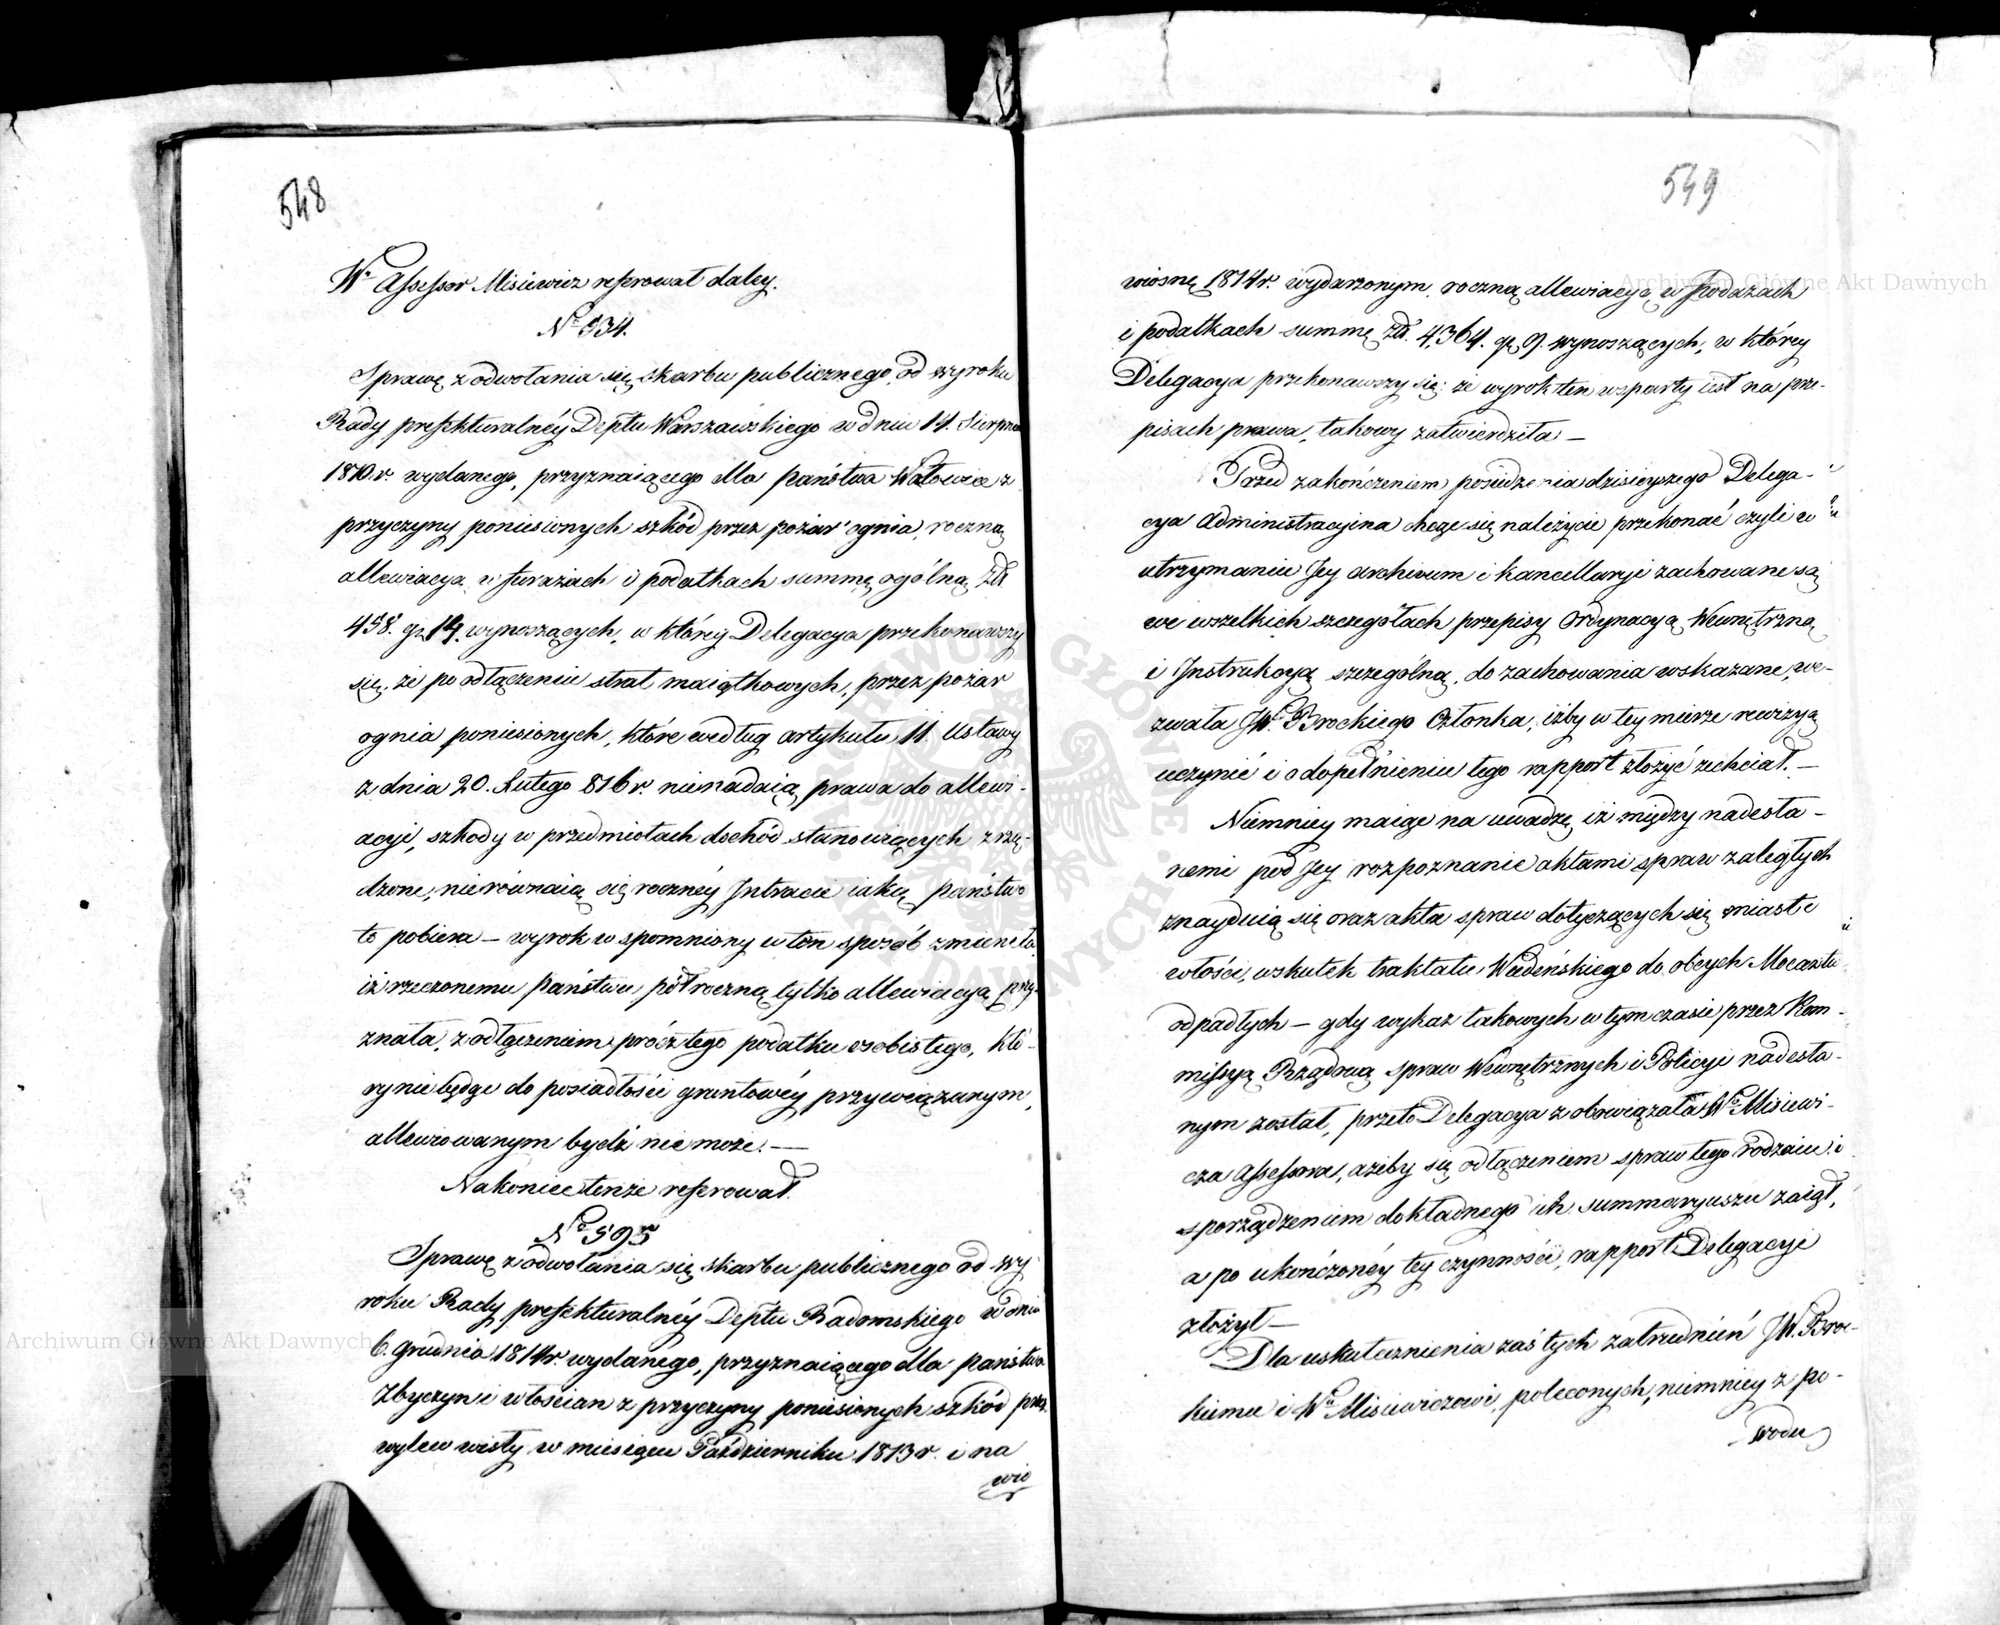 548
Wny Assessor Misiewicz referował daley.
No 934.
Sprawę z odwołania się skarbu publicznego od wyroku
Rady prefekturalnéy Deptu Warszawskiego w dniu 14. Sierpnia
1810. r. wydanego, przyznaiącego dla państwa Watowice z
przyczyny poniesionych szkód przez pożar ognia, roczną
allewiacyą w furażach i podatkach summę ogólną Złł
458. gr 14. wynoszących, w któréy Delegacya przekonawszy
się, że po odłączeniu strat maiątkowych, przez pożar
ognia poniesionych, które według artykułu 11. Ustawy
z dnia 20. Lutego 816 r. nienadaią prawa do allewi-
acyi, szkody w przedmiotach dochód stanowiących zrzą-
dzone, nierównaią się rocznéy Intracie iaką państwo
to pobiera — wyrok wspomniony w ten sposób zmieniła,
iż rzeczonemu państwu półroczną tylko allewiacyą przy-
znała, z odłączeniem prócz tego podatku osobistego, któ-
ry nie będąc do posiadłości gruntowéy przywiązanym,
allewiowanym bydź nie może. —
Nakoniec tenże referował.
No 595
Sprawę z odwołania się skarbu publicznego od wy
roku Rady prefekturalnéy Deptu Radomskiego w dniu
6. grudnia 1814 r. wydanego, przyznaiącego dla państwa
Zbyczyn i włościan z przyczyny poniesionych szkód przez
wylew wisły w miesiącu Październiku 1813 r. i na
wio
549
wiosnę 1814 r. wydarzonym, roczną allewiacyą w furażach
i podatkach summę Złł. 4,364. gr 9. wynoszących, w któréy
Delegacya przekonawszy się: że wyrok ten wsparty iest na prze-
pisach prawa, takowy zatwierdziła —
Przed zakończeniem posiedzenia dzisieyszego Delega-
cya Administracyina chcąc się należycie przekonać czyli w
utrzymaniu Jey archiwum i kancellaryi zachowane są
we wszelkich szczegółach przepisy Ordynacyą Wewnętrzną
i Instrukcyą szczególną do zachowania wskazane, we-
zwała JW. Brockiego Członka, iżby w tey mierze rewizyą
uczynić i o dopełnieniu tego rapport złożyć zechciał. —
Niemniey maiąc na uwadze, iż między nadesła-
nemi pod Jey rozpoznanie aktami spraw zaległych
znayduią się oraz akta spraw dotyczących się miast i
włości, wskutek traktatu Wiedeńskiego do obcych Mocarstw
odpadłych — gdy wykaz takowych w tym czasie przez Kom-
missyą Rządową spraw Wewnętrznych i Policyi nadesła-
nym został, przeto Delegacya zobowiązała Wo Misiewi-
cza Assessora, ażeby się odłączeniem spraw tego rodzaiu i
sporządzeniem dokładnego ich summaryuszu zaiął,
a po ukończonéy tey czynności, rapport Delegacyi
złożył —
Dla uskutecznienia zaś tych zatrudnień JW. Broc-
kiemu i Wu Misiewiczowi, poleconych, niemniey z po-
wodu
Archiwum Główne Akt Dawnych
Archiwum Główne Akt Dawnych
ARCHIWUM GŁÓWNE AKT DAWNYCH